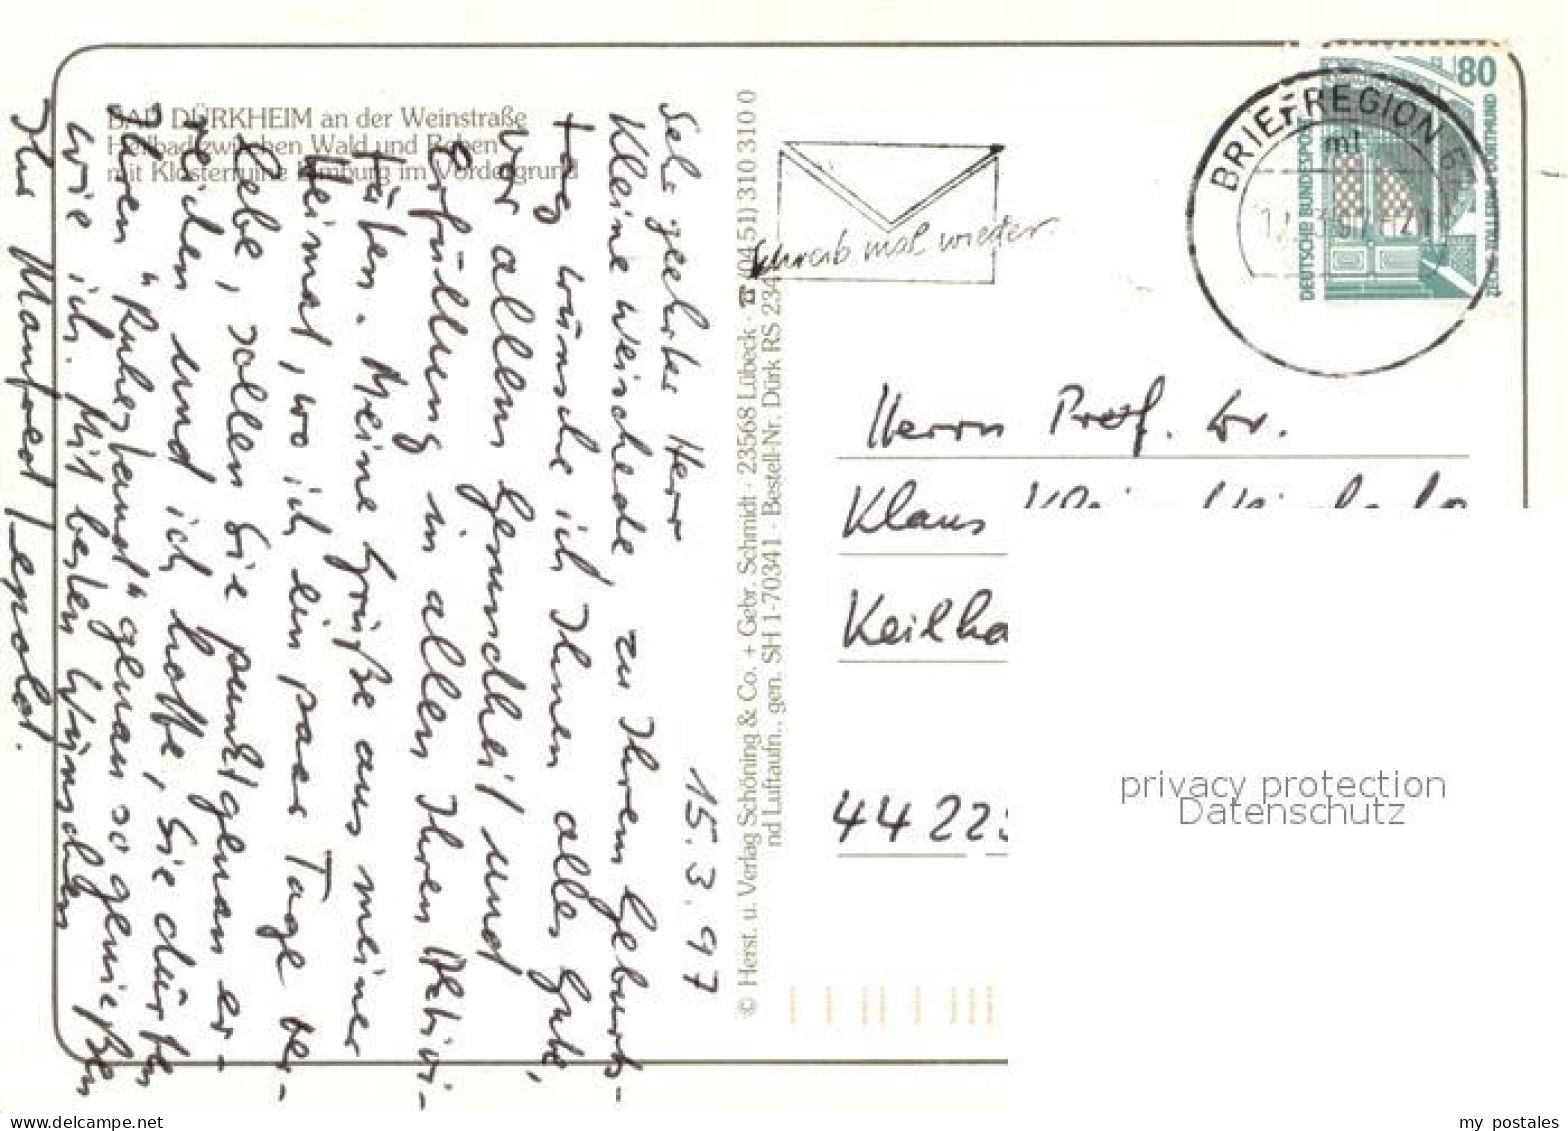 BAD DÜRKHEIM an der Weinstraße
Heilbad zwischen Wald und Reben
mit Klosterruine Limburg im Vordergrund
15.3.97
Sehr geehrter Herr
Kleine Weischede, zu Ihrem Geburts-
tag wünsche ich Ihnen alles Gute,
vor allem Gesundheit und
Erfüllung in allen Ihren Aktivi-
täten. Meine Grüße aus meiner
Heimat, wo ich ein paar Tage ver-
lebe, sollen Sie punktgenau er-
reichen und ich hoffe, Sie dürfen
Ihren "Ruhestand" genau so genießen
wie ich. Mit besten Wünschen
Ihr Manfred
© Herst. u. Verlag Schöning & Co. + Gebr. Schmidt · 23568 Lübeck · ☎ (04 51) 310 310 0
nd Luftaufn., gen. SH 1-70341 · Bestell-Nr. Dürk RS 234
Schreib mal wieder.
BRIEFREGION 67
mt
80
DEUTSCHE BUNDESPOST
ZECHE ZOLLERN II DORTMUND
Herrn Prof. Dr.
Klaus
Keilha
4422
privacy protection
Datenschutz
my postales